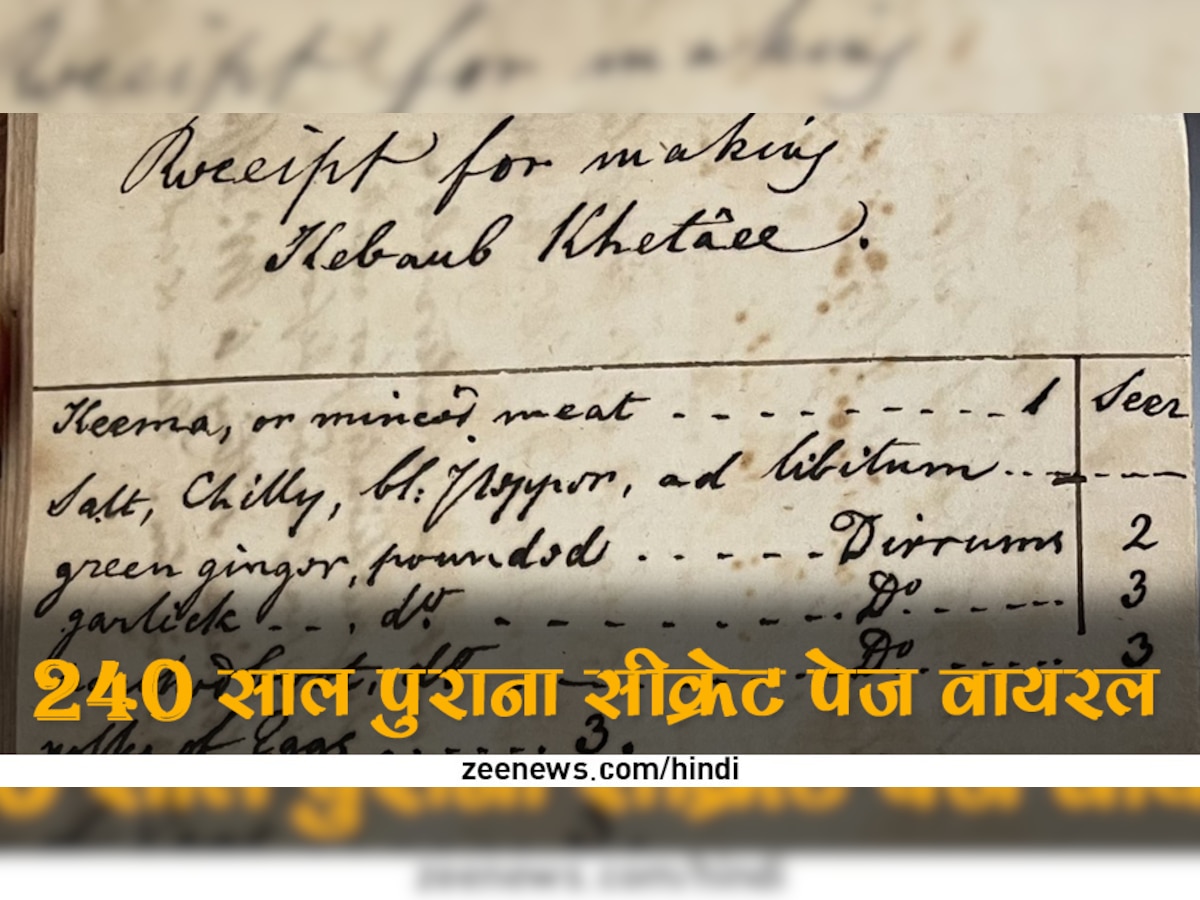 Receipt for making
Receipt for making
Kebaub Khetâee.
Keema, or minced meat - - - - - - - - - - 1 Seer
Salt, Chilly, bl: Pepper, ad libitum - - - - - -
green ginger, pounded - - - - - - Dirrums 2
garlick - - - do. - - - - - - - - - Do. - - - - - 3
do Do - - - - - 3
240 साल पुराना सीक्रेट पेज वायरल
of Eggs - - - - - - 3.
zeenews.com/hindi
zeenews.com/hindi